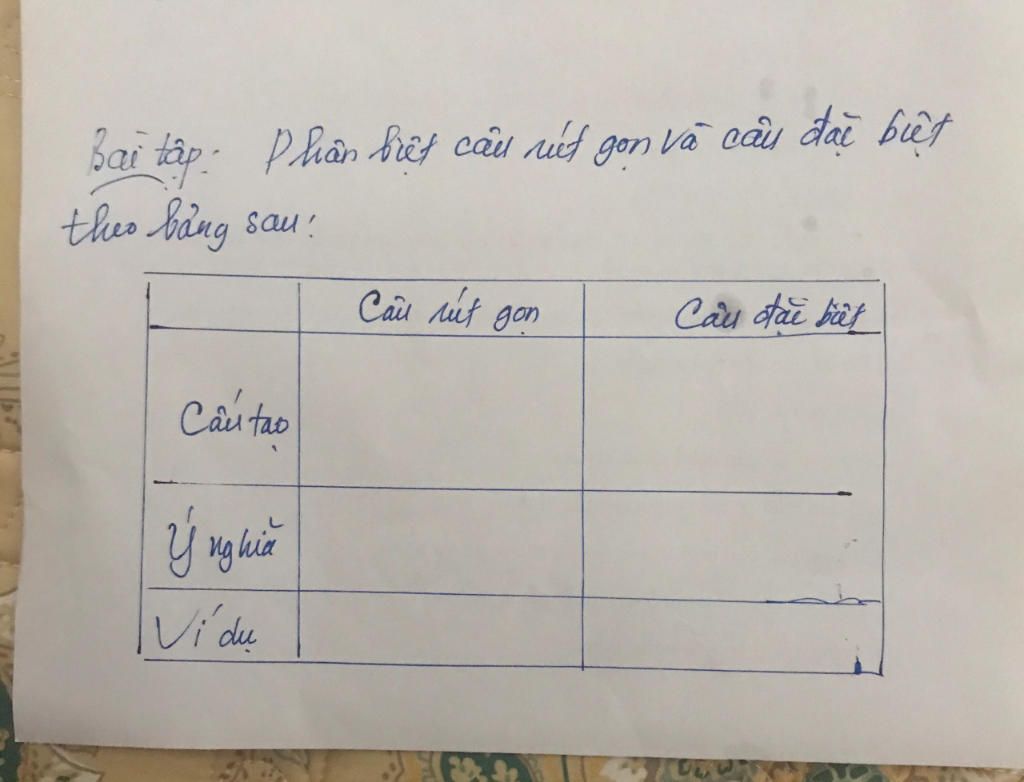 Bài tập: Phân biệt câu rút gọn và câu đặc biệt
theo bảng sau:
Câu rút gọn
Câu đặc biệt
Cấu tạo
Ý nghĩa
Ví dụ